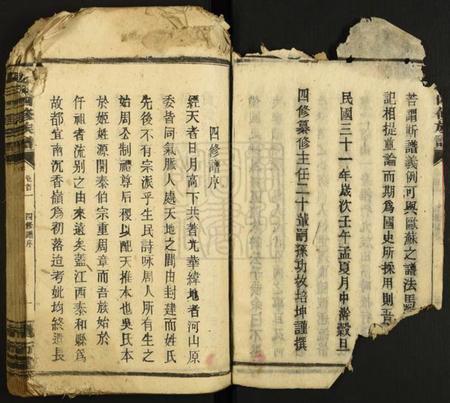 若謂斯譜義例可與歐蘇之譜法馬
記相提並論而期為國史所採用則吾
民國三十一年歲次壬午孟夏月中澣穀旦
四修纂修主任二十輩嗣孫功枚培坤謹撰
四修譜序
經天者日月高下共著光華緯地者河山原
委皆同氣脈人處天地之間由封建而姓氏
先後不有宗派乎生民詩咏周人所有生之
始周公制禮尊后稷以配天推本也吳氏本
於姬姓源開泰伯宗重周章而吾族始于
仟祖者流別之由來遠矣藍江西泰和縣為
故都宜南沉香嶺為初落迨考妣均終造長
卷首
四修譜序